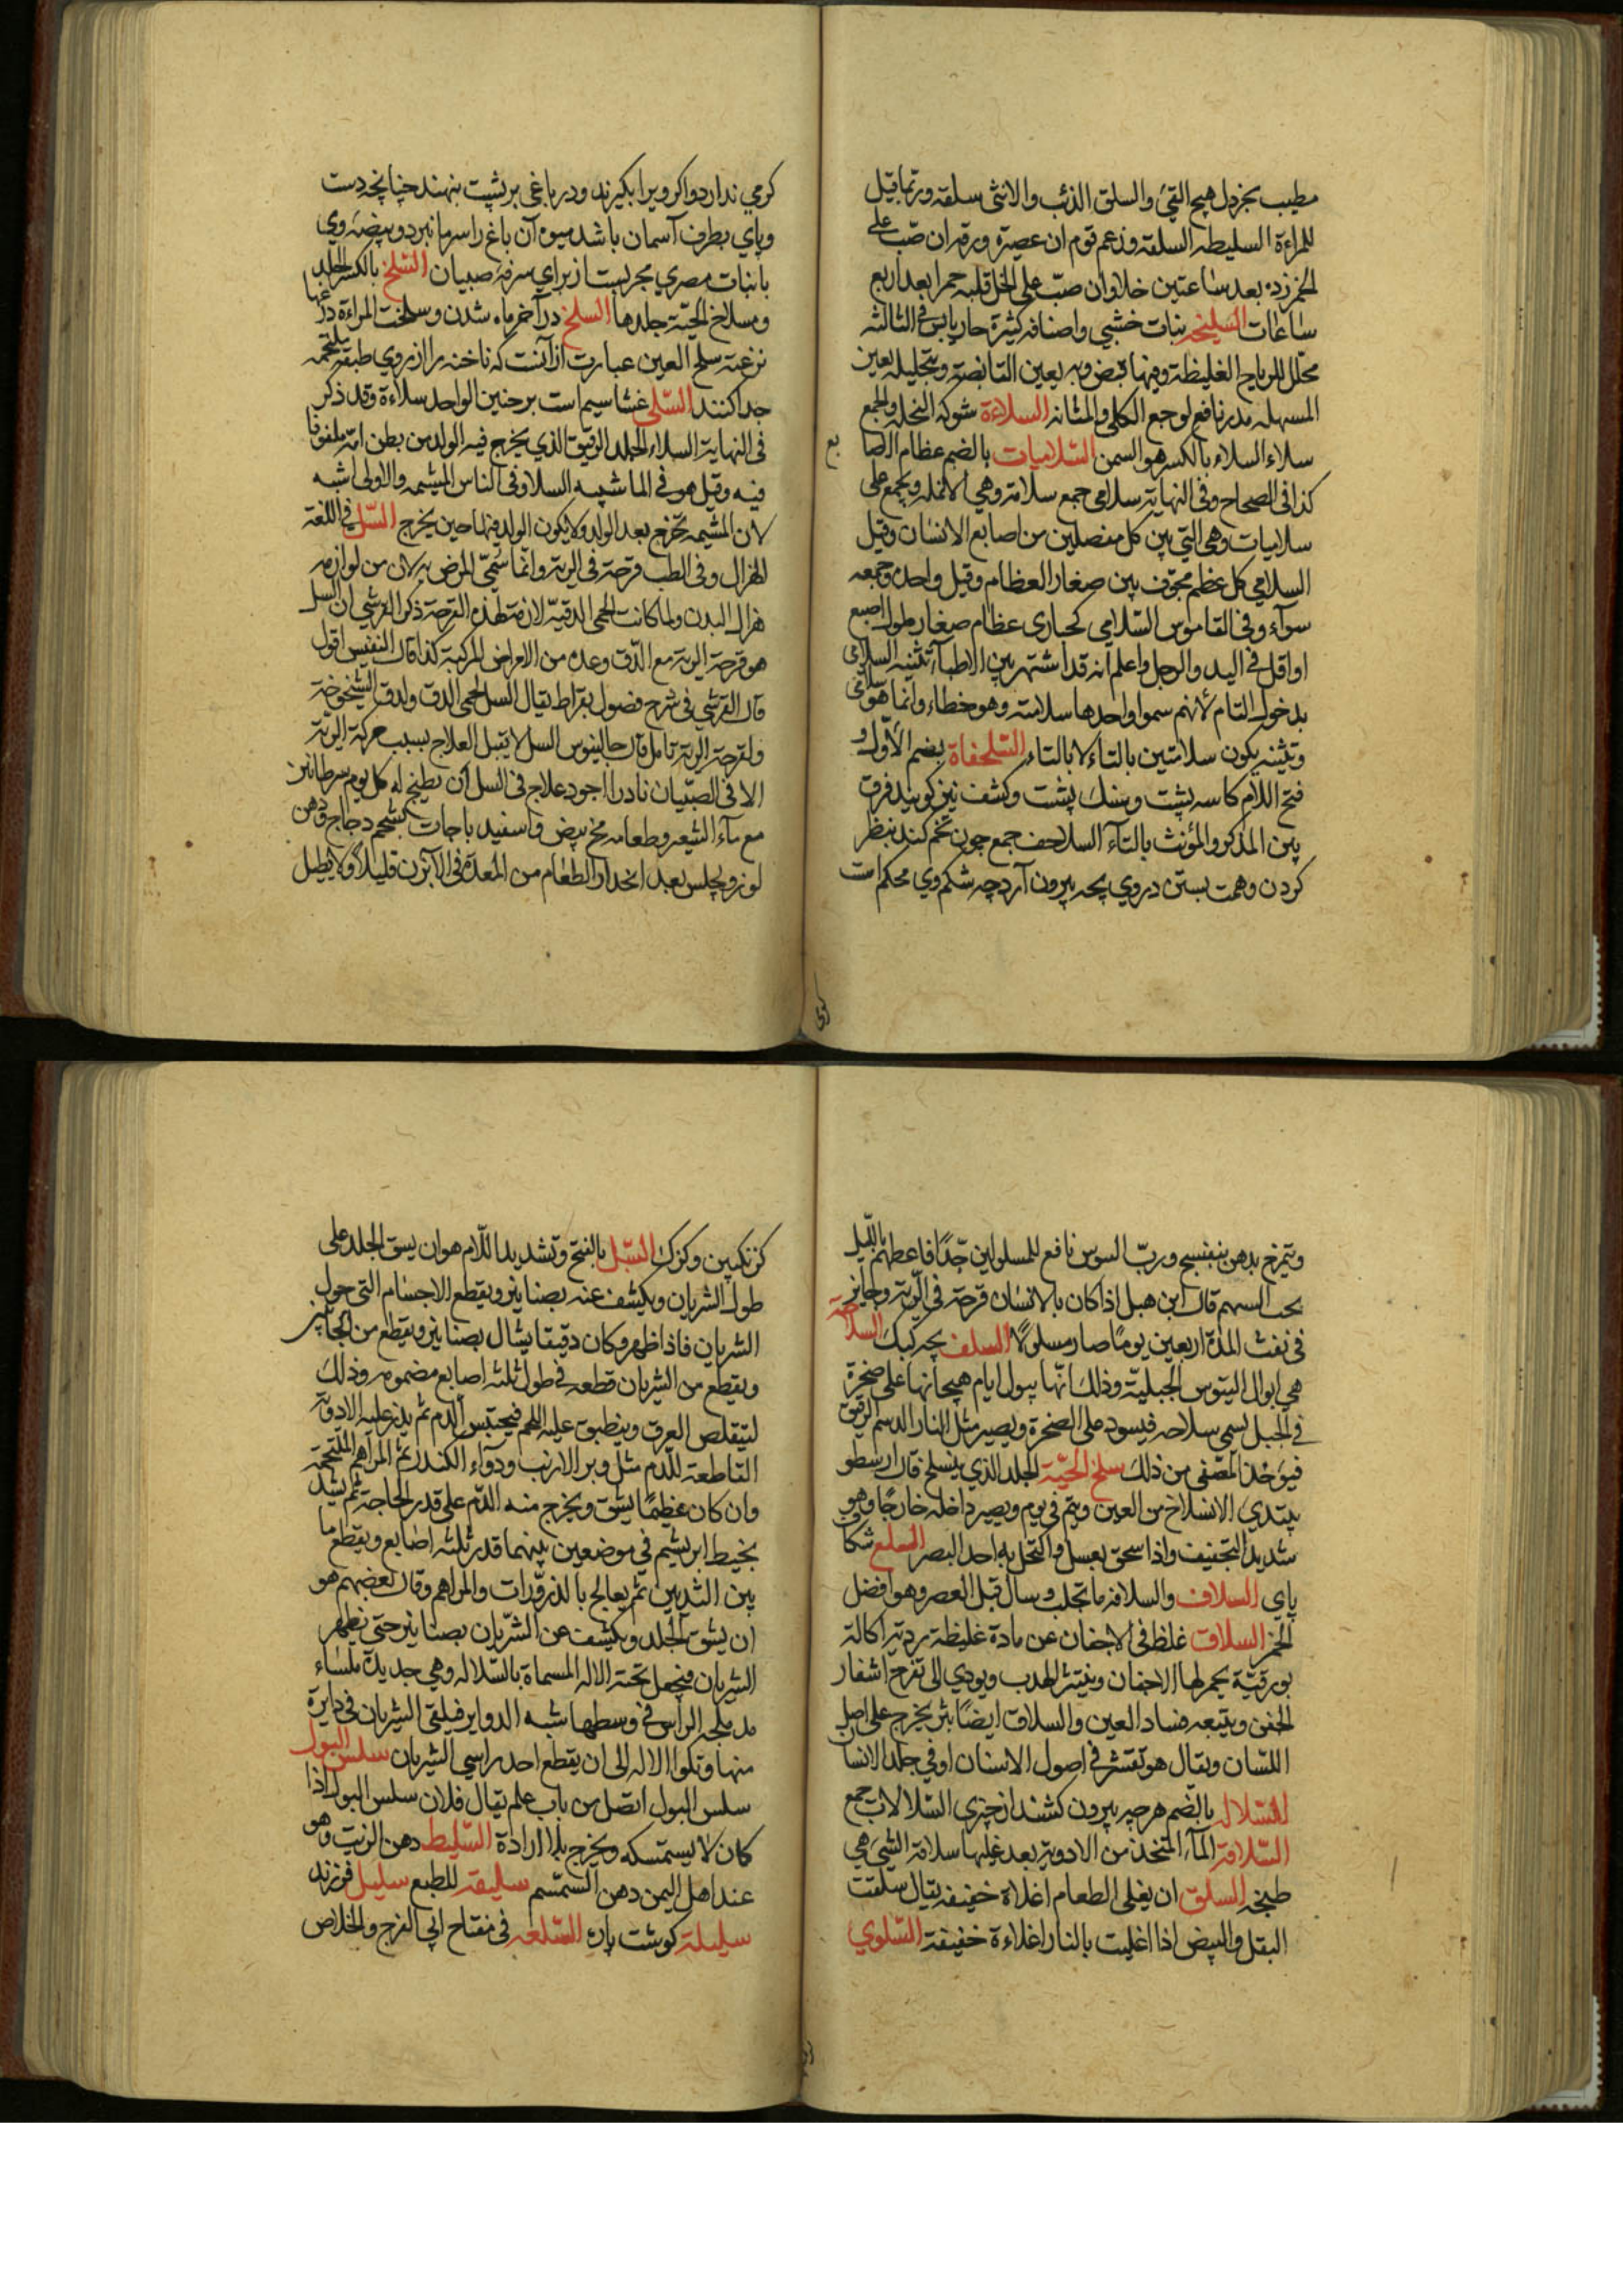 مطيب بخردل هيج القيء والسلق الذئب والانثى سلقه وربما قيل
للمراءة السليطه السلقه وزعم قوم ان عصيره ورقه ان صب على
الخمر زده بعد ساعتين خلا وان صب على الخل قلبه خمرا بعد اربع
ساعات السليخه نبات خشبي واصنافه كثيرة حار يابس في الثالثه
محلل للرياح الغليظة وفيها قبض وبه يعين القابضة وبتحليله يعين
المسهله مدر نافع لوجع الكلى والمثانه السلاءة شوكه النخله والجمع
سلاء السلاء بالكسر هو السمن السلاميات بالضم عظام الاصابع
كذا في الصحاح وفي النهاية سلامى جمع سلامة وهي الانمله ويجمع على
سلاميات وهى التي بين كل مفصلين من اصابع الانسان وقيل
السلامي كل عظم مجوف بين صغار العظام وقيل واحده وجمعه
سوآء وفي القاموس السلامى كحبارى عظام صغار طول اصبع
او اقل في اليد والرجل واعلم انه قد اشتهر بين الاطبآء تثنيه السلامى
بدخول التام لانهم سموا واحدها سلامته وهو خطاء وانما هو سلامى
وتثنيه يكون سلامتين بالتاء لا بالتاء السلحفاة بضم الاول و
فتح اللام كاسه پشت وسنك پشت وكشف نيز كويند فرق
بين المذكر والمؤنث بالتآء السلاحف جمع چون تخم كند بنظر
كردن وهمت بستن در وي بچه بيرون آرد چه شكم وي محكم است
كرمي ندارد واكر ويرا بكيرند ودر باغي بر پشت بنهند چنانچه دست
وپاي بطرف آسمان باشد ميوه آن باغ را سرما نبرد وبيضه وي
با نبات مصري مجربست از براي سرفه صبيان السلخ بالكسر الجلد
ومسلاخ الحية جلدها السلخ در آخر ماه شدن وسلخت المراءة درعها
نزعته سلخ العين عبارت از آنست كه ناخنه را از روي طبقه ملتحمه
جدا كنند السلى غشا سيم است بر جنين الواحد سلاءة وقد ذكر
فى النهاية السلاء الجلد الرقيق الذي يخرج فيه الولد من بطن امه ملفوفا
فيه وقيل هو في الماشيه السلا وفى الناس المشيمه والاولى اشبه
لان المشيمه تخرج بعد الولد ولا يكون الولد فيها حين يخرج السل في اللغة
الهزال وفى الطب قرحة في الرية وانما سمي المرض به لان من لوازمه
هزال البدن ولما كانت الحمى الدقية لازمة لهذه القرحة ذكر القرشي ان السل
هو قرحة الرية مع الدق وعده من الامراض المركبة كذا قال النفيس اقول
قال القرشي في شرح فصول بقراط يقال السل لحمى الدق ولدق الشيخوخة
ولقرحة الرية تامل قال جالينوس السل لا يقبل العلاج بسبب حركة الرية
الا فى الصبيان نادرا اجود علاج فى السل ان يطبخ له كل يوم سرطانين
مع مآء الشعير وطعامه مخ بيض واسفيدباجات بشحم دجاج ودهن
لوز ويجلس بعد انحدار الطعام من المعدة فى الآبزن قليلا ولا يطيل
ويتمرخ بدهن بنفسج ورب السوس نافع للمسلولين جدا فاعطهم بالليل
بحب السهم قال ابن هبل اذا كان بالانسان قرحة في الرية وجاوز
في نفث المدة اربعين يوما صار مسلولا السلف بچه كبك السلاحة
هي ابوال التيوس الجبلية وذلك انها يبول ايام هيجانها على صخرة
في الجبل يسمى سلاحه فيسود على الصخرة ويصير مثل النار الدسم الرقيق
فيؤخذ المصفى من ذلك سلخ الحية الجلد الذي ينسلخ قال ارسطو
يبتدي الانسلاخ من العين ويتم في يوم ويصير داخله خارجا وهو
شديد التجفيف واذا سحق بعسل واكتحل به احد البصر السلع شكاف
پاي السلاف والسلافه ما تحلب وسال قبل العصر وهو افضل
الخمر السلاق غلظ في الاجفان عن مادة غليظة ردية اكالة
بورقية يحمر لها الاجفان وينتثر الهدب ويودي الى تقرح اشفار
الجفن ويتبعه فساد العين والسلاق ايضا بثر يخرج على اصل
اللسان ويقال هو تقشر في اصول الاسنان او في جلد الانسان
السلاله بالضم هر چه بيرون كشند از چيزي السلالات جمع
السلاقة المآء المتخذ من الادوية بعد غليها سلاقة الشيء هي
طبخه السلق ان يغلى الطعام اغلاة خفيفه يقال سلقت
البقل والبيض اذا اغليت بالنار اغلاءة خفيفة السلوي
كزنكبين وكرك السل بالفتح وتشديد اللام هو ان يشق الجلد على
طول الشريان ويكشف عنه بصنانير ويقطع الاجسام التي حول
الشريان فاذا ظهر وكان دقيقا يشال بصنانير ويقطع من الجانبين
ويقطع من الشريان قطعه في طول ثلثه اصابع مضمومه وذلك
ليتقلص العرق وينطبق عليه اللحم فيحتبس الدم ثم يذر عليه الادوية
القاطعة للدم مثل وبر الارنب ودوآء الكندر ثم المراهم الملتحمة
وان كان عظيما يشق ويخرج منه الدم على قدر الحاجة ثم يشد
بخيط ابريشم في موضعين بينهما قدر ثلثه اصابع ويقطع ما
بين الشدين ثم يعالج بالذرورات والمراهم وقال بعضهم هو
ان يشق الجلد ويكشف عن الشريان بصنانير حتى يظهر
الشريان فيجعل تحته الاله المسماة بالسلاله وهي حديدة ملساء
مدملجه الراس في وسطها شبه الدواير فيلقى الشريان في دايرة
منها وتلوا الاله الى ان يقطع احد راسي الشريان سلس البول
سلس البول اتصل من باب علم يقال فلان سلس البول اذا
كان لا يستمسكه ويخرج بلا ارادة السليط دهن الزيت وهو
عند اهل اليمن دهن السمسم سليقه للطبع سليل فرزند
سليله كوشت پاره السلعه في مفتاح ابي الفرج والخلاص